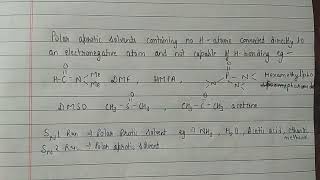 Polar aprotic solvents containing no H-atoms connected directly to
an electronegative atom and not capable of H-bonding eg -
H-C-N Me Me DMF, HMPA, Hexamethylpho
DMSO CH₃ CH₃, CH₃ CH₃ acetone
SN1 Rxn → Polar Protic Solvent eg NH₃, H₂O, Acetic acid, ethanol
methanol
SN2 Rxn → Polar aprotic solvent